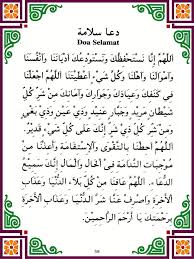 دعا سلامة
Doa Selamat
اَللّٰهُمَّ إِنَّا نَسْتَحْفِظُكَ وَنَسْتَوْدِعُكَ أَدْيَانَنَا وَأَنْفُسَنَا
وَأَمْوَالَنَا وَأَهْلَنَا وَكُلَّ شَيْءٍ أَعْطَيْتَنَا اَللّٰهُمَّ اجْعَلْنَا
فِي كَنَفِكَ وَعِيَاذِكَ وَجِوَارِكَ وَأَمَانِكَ مِنْ شَرِّ كُلِّ
شَيْطَانٍ مَرِيْدٍ وَجَبَّارٍ عَنِيْدٍ وَذِي عَيْنٍ وَذِي بَغْيٍ
وَمِنْ شَرِّ كُلِّ ذِي شَرٍّ إِنَّكَ عَلَى كُلِّ شَيْءٍ قَدِيْرٌ.
اَللّٰهُمَّ احْفَظْنَا بِالتَّقْوَى وَالْاِسْتِقَامَةِ وَأَعِذْنَا مِنْ
مُوْجِبَاتِ النَّدَامَةِ فِي الْحَالِ وَالْمَآلِ إِنَّكَ سَمِيْعُ
الدُّعَاءِ. اَللّٰهُمَّ عَافِنَا مِنْ كُلِّ بَلَاءِ الدُّنْيَا وَعَذَابِ
الْآخِرَةِ وَاصْرِفْ عَنَّا شَرَّ الدُّنْيَا وَعَذَابَ الْآخِرَةِ
بِرَحْمَتِكَ يَا أَرْحَمَ الرَّاحِمِيْنَ.